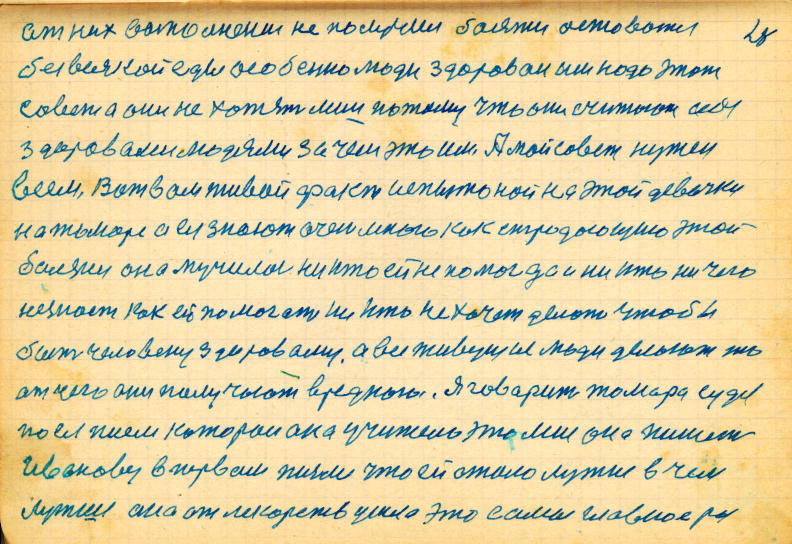 от них выполнении не получил болязни оставатся 28
без всякой еды особенно люди здороваи им надо этот
совет а они не хотят мии потому что они считают себя
здоровами людями зачем это им. А мой совет нужен
всем. Вот вам живой факт испытоной на этой девачки
на тамаре а ей знают очен много как страдающую этой
балязни она мучилас ни кто ей не помогал и ни кто ничего
незнает как ей помогат ни кто не хочет делат чтобы
быт человеку здоровому. а все живущие люди делают то
от чего они получают вредного. Я говарит томара суде
после писем котором она учитель это мии она пишет
Иванову в первом писми что ей стало лутше в чем
лутши она от лекарств ушла это самы главное ре